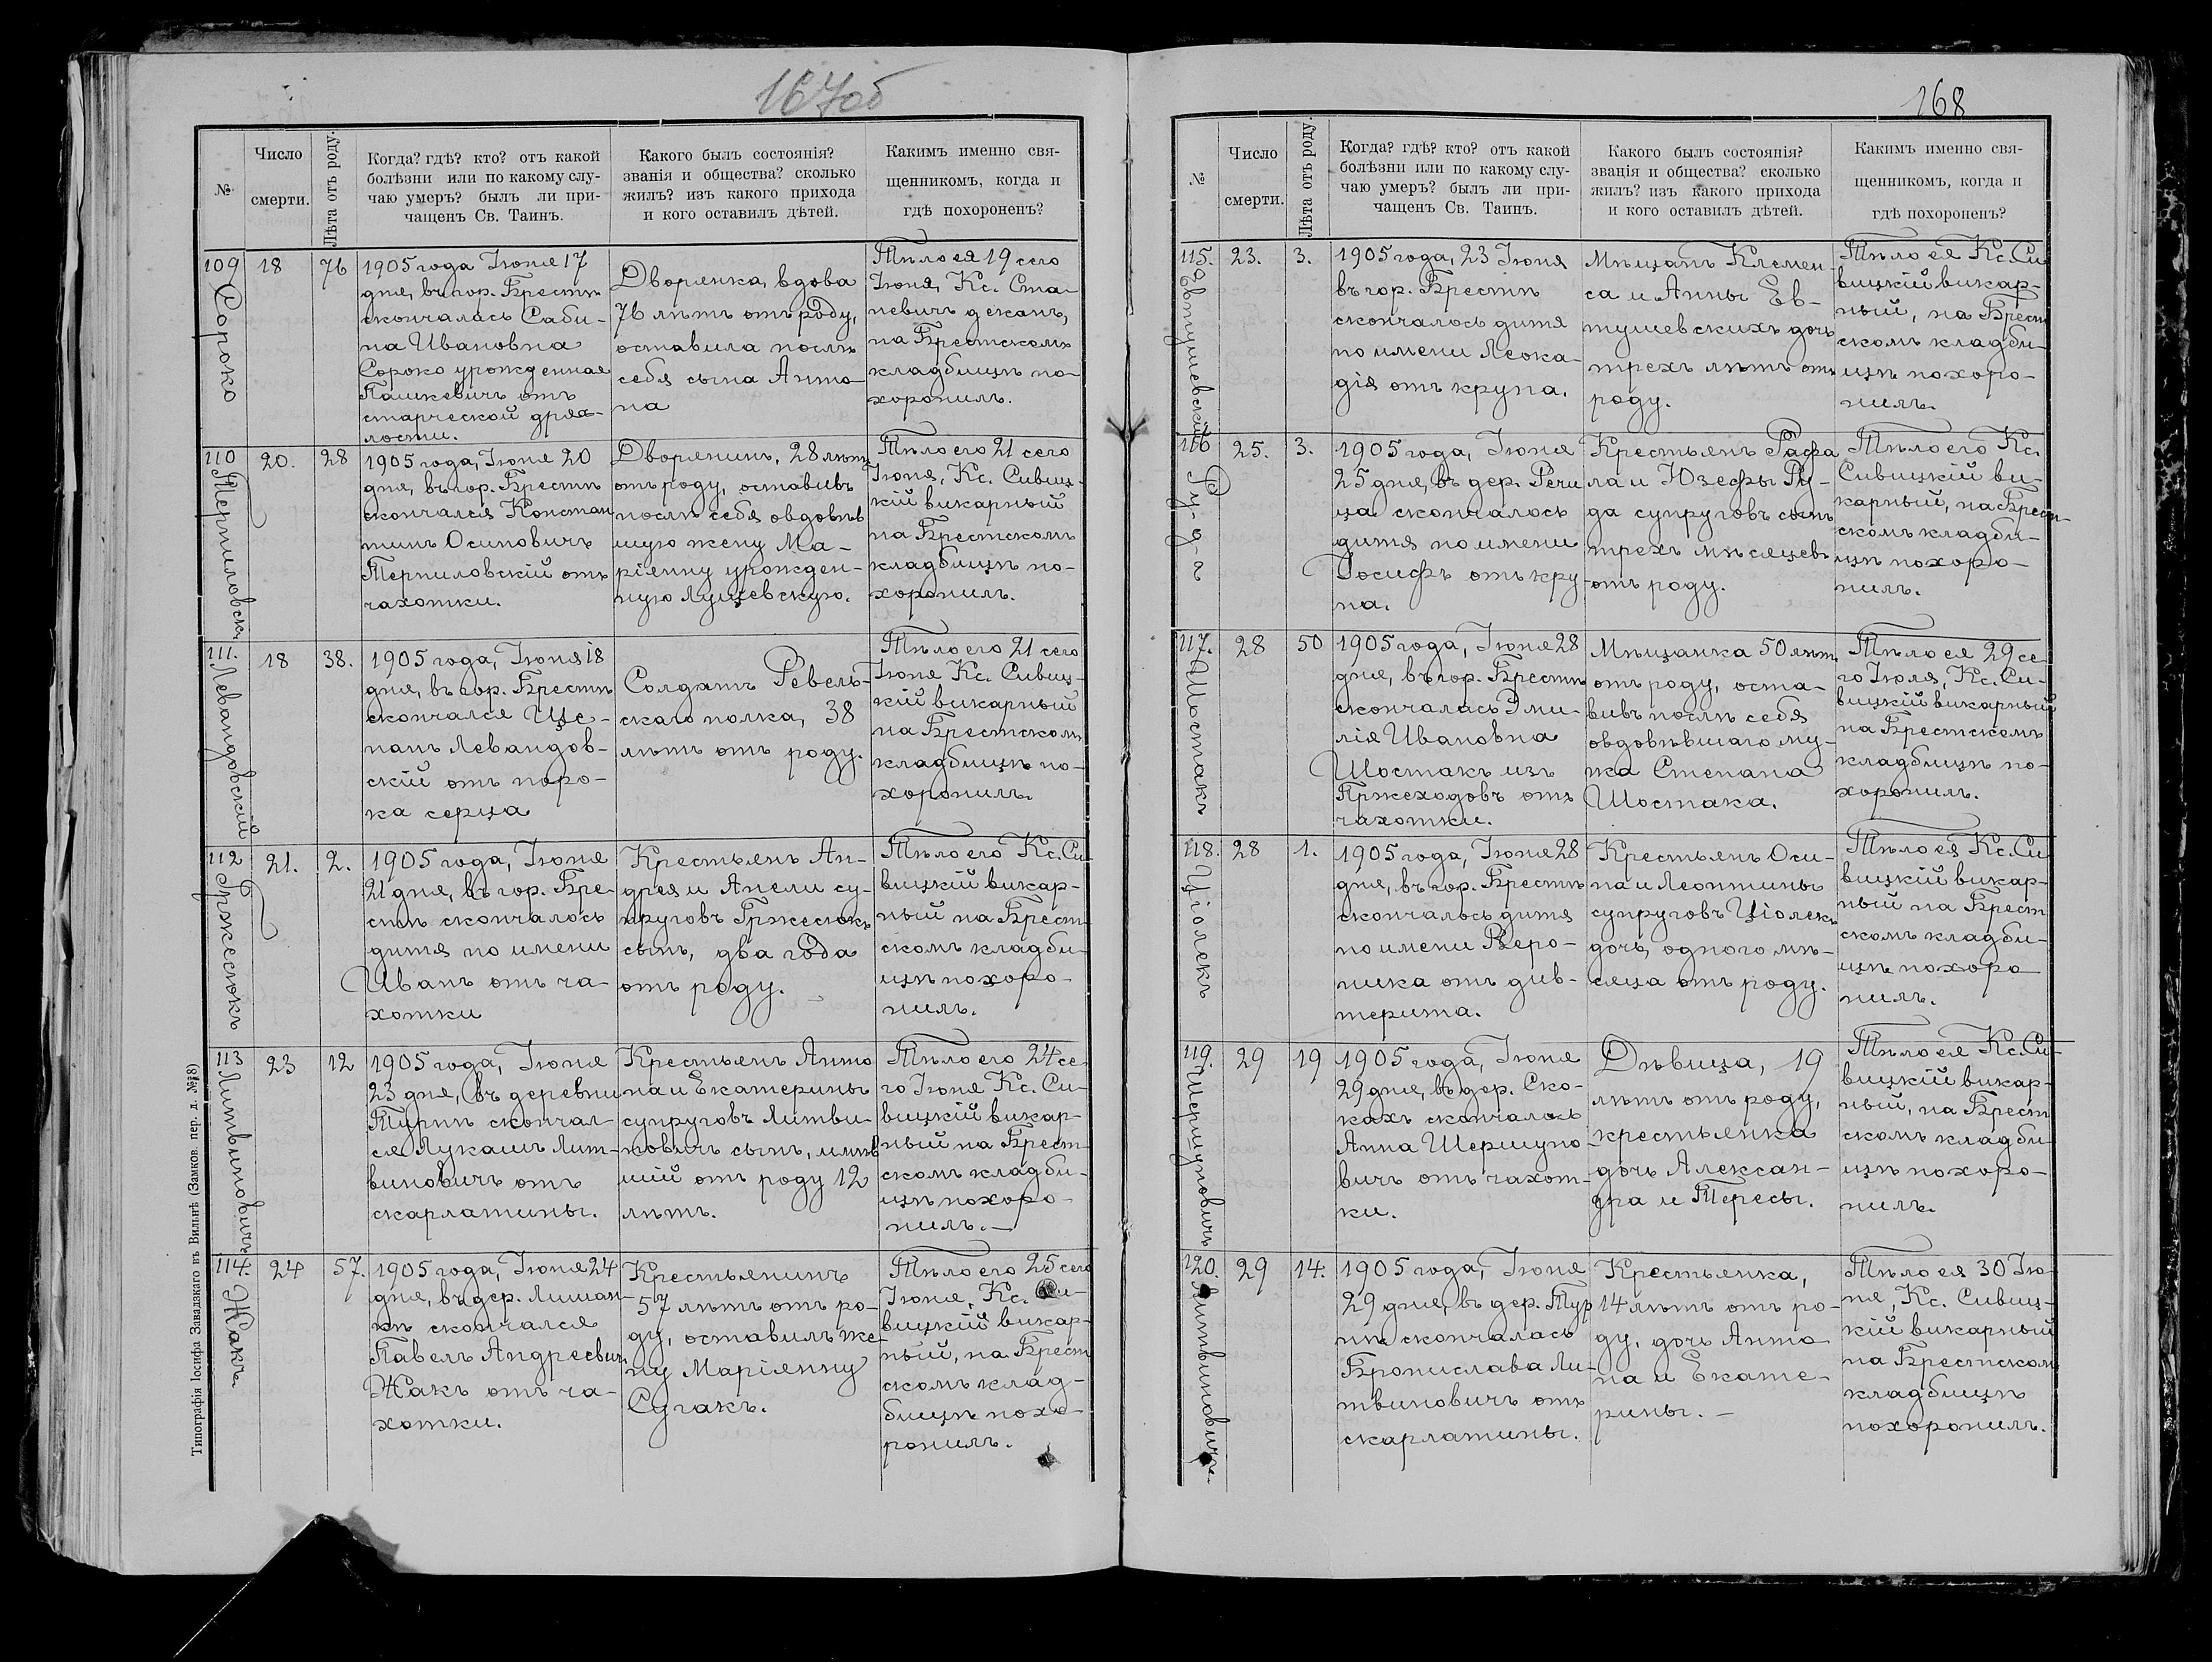 167об
№
Число
смерти.
Лѣта отъ роду.
Когда? гдѣ? кто? отъ какой
болѣзни или по какому слу-
чаю умеръ? былъ ли при-
чащенъ Св. Таинъ.
Какого былъ состоянія?
званія и общества? сколько
жилъ? изъ какого прихода
и кого оставилъ дѣтей.
Какимъ именно свя-
щенникомъ, когда и
гдѣ похороненъ?
109
Сороко
18
76
1905 года Іюня 17
дня, въ гор. Брестѣ
скончалась Саби-
на Ивановна
Сороко урожденная
Пашкевичъ отъ
старческой дрях-
лости.
Дворянка, вдова
76 лѣтъ отъ роду,
оставила послѣ
себя сына Анто-
на
Тѣло ея 19 сего
Іюня, Кс. Ста-
невичъ деканъ,
на Брестскомъ
кладбищѣ по-
хоронилъ.
110
Терпиловскъ
20.
28
1905 года, Іюня 20
дня, въ гор. Брестѣ
скончался Констан
тинъ Осиповичъ
Терпиловскій отъ
чахотки.
Дворянинъ, 28 лѣтъ
отъ роду, оставивъ
послѣ себя овдовѣв
шую жену Ма-
ріянну урожден-
ную Лущевскую.
Тѣло его 21 сего
Іюня, Кс. Сивиц-
кій викарный
на Брестскомъ
кладбищѣ по-
хоронилъ.
111.
Левандовскій
18
38.
1905 года, Іюня 18
дня, въ гор. Брестѣ
скончался Ще-
панъ Левандов-
скій отъ поро-
ка серца
Солдатъ Ревель-
скаго полка, 38
лѣтъ отъ роду.
Тѣло его 21 сего
Іюня Кс. Сивиц-
кій викарный
на Брестскомъ
кладбищѣ по-
хоронилъ.
112
Гржесюкъ
21.
2.
1905 года, Іюня
21 дня, въ гор. Бре-
стѣ скончалось
дитя по имени
Иванъ отъ ча-
хотки
Крестьянъ Ан-
дрея и Анели су-
пруговъ Гржесюкъ
сынъ, два года
отъ роду.
Тѣло его Кс. Си-
вицкій викар-
ный на Брест-
скомъ кладби-
щѣ похоро-
нилъ.
113.
Литвиновичъ
23
12
1905 года, Іюня
23 дня, въ деревни
Турнѣ скончал-
ся Лукашъ Лит-
виновичъ отъ
скарлатины.
Крестьянъ Анто
на и Екатерины
супруговъ Литви-
новичъ сынъ, имѣв
шій отъ роду 12
лѣтъ.
Тѣло его 24 се-
го Іюня Кс. Си-
вицкій викар-
ный на Брест-
скомъ кладби-
щѣ похоро-
нилъ.—
114.
Жакъ.
24
57.
1905 года, Іюня 24
дня, въ дер. Лишан-
кѣ скончался
Павелъ Андреевичъ
Жакъ отъ ча-
хотки.
Крестьянинъ
57 лѣтъ отъ ро-
ду, оставилъ же-
ну Маріянну
Сугакъ.
Тѣло его 25 сего
Іюня, Кс. Си-
вицкій викар-
ный, на Брест
скомъ клад-
бищѣ похо-
ронилъ.
Типографія Іосифа Завадзкаго въ Вильнѣ (Замков. пер. д. №78)
168
№
Число
смерти.
Лѣта отъ роду.
Когда? гдѣ? кто? отъ какой
болѣзни или по какому слу-
чаю умеръ? былъ ли при-
чащенъ Св. Таинъ.
Какого былъ состоянія?
званія и общества? сколько
жилъ? изъ какого прихода
и кого оставилъ дѣтей.
Какимъ именно свя-
щенникомъ, когда и
гдѣ похороненъ?
115.
Евтушевскій
23.
3.
1905 года, 23 Іюня
въ гор. Брестѣ
скончалось дитя
по имени Леока-
дія отъ крупа.
Мѣщанъ Клемен-
са и Анны Ев-
тушевскихъ дочь
трехъ лѣтъ отъ
роду.
Тѣло ея Кс. Си
вицкій викар-
ный, на Брест
скомъ кладби-
щѣ похоро-
нилъ.
116
Ру-д-а
25.
3.
1905 года, Іюня
25 дня, въ дер. Речи
ца скончалось
дитя по имени
Іосифъ отъ кру-
па.
Крестьянъ Рафа
ла и Юзефы Ру-
да супруговъ сынъ
трехъ мѣсяцевъ
отъ роду.
Тѣло его Кс.
Сивицкій ви-
карный, на Брест-
скомъ кладби-
щѣ похоро-
нилъ.
117.
Шостакъ
28
50
1905 года, Іюня 28
дня, въ гор. Брестѣ
скончалась Эми-
лія Ивановна
Шостакъ изъ
Пржеходовъ отъ
чахотки.
Мѣщанка 50 лѣтъ
отъ роду, оста-
вивъ послѣ себя
овдовѣвшаго му-
жа Степана
Шостака.
Тѣло ея 29 се-
го Іюля, Кс. Си-
вицкій викарный
на Брестскомъ
кладбищѣ по-
хоронилъ.
118.
Ціолекъ
28
1.
1905 года, Іюня 28
дня, въ гор. Брестѣ
скончалось дитя
по имени Веро-
ника отъ диф-
терита.
Крестьянъ Оси-
па и Леонтины
супруговъ Ціолекъ
дочь, одного мѣ-
сяца отъ роду.
Тѣло ея Кс. Си
вицкій викар-
ный на Брест
скомъ кладби-
щѣ похоро
нилъ.
119.
Шершуновичъ
29
19
1905 года, Іюня
29 дня, въ дер. Ско-
кахъ скончалась
Анна Шершуно-
вичъ отъ чахот-
ки.
Дѣвица, 19
лѣтъ отъ роду,
крестьянка
дочь Алексан-
дра и Тересы.
Тѣло ея Кс. Си-
вицкій викар-
ный, на Брест
скомъ кладби-
щѣ похоро-
нилъ.
120.
Литвиновичъ
29
14.
1905 года, Іюня
29 дня, въ дер. Тур
нѣ скончалась
Бронислава Ли-
твиновичъ отъ
скарлатины.
Крестьянка,
14 лѣтъ отъ ро-
ду, дочь Анто
на и Екате-
рины.—
Тѣло ея 30 Ію-
ня, Кс. Сивиц-
кій викарный
на Брестском
кладбищѣ
похоронилъ.